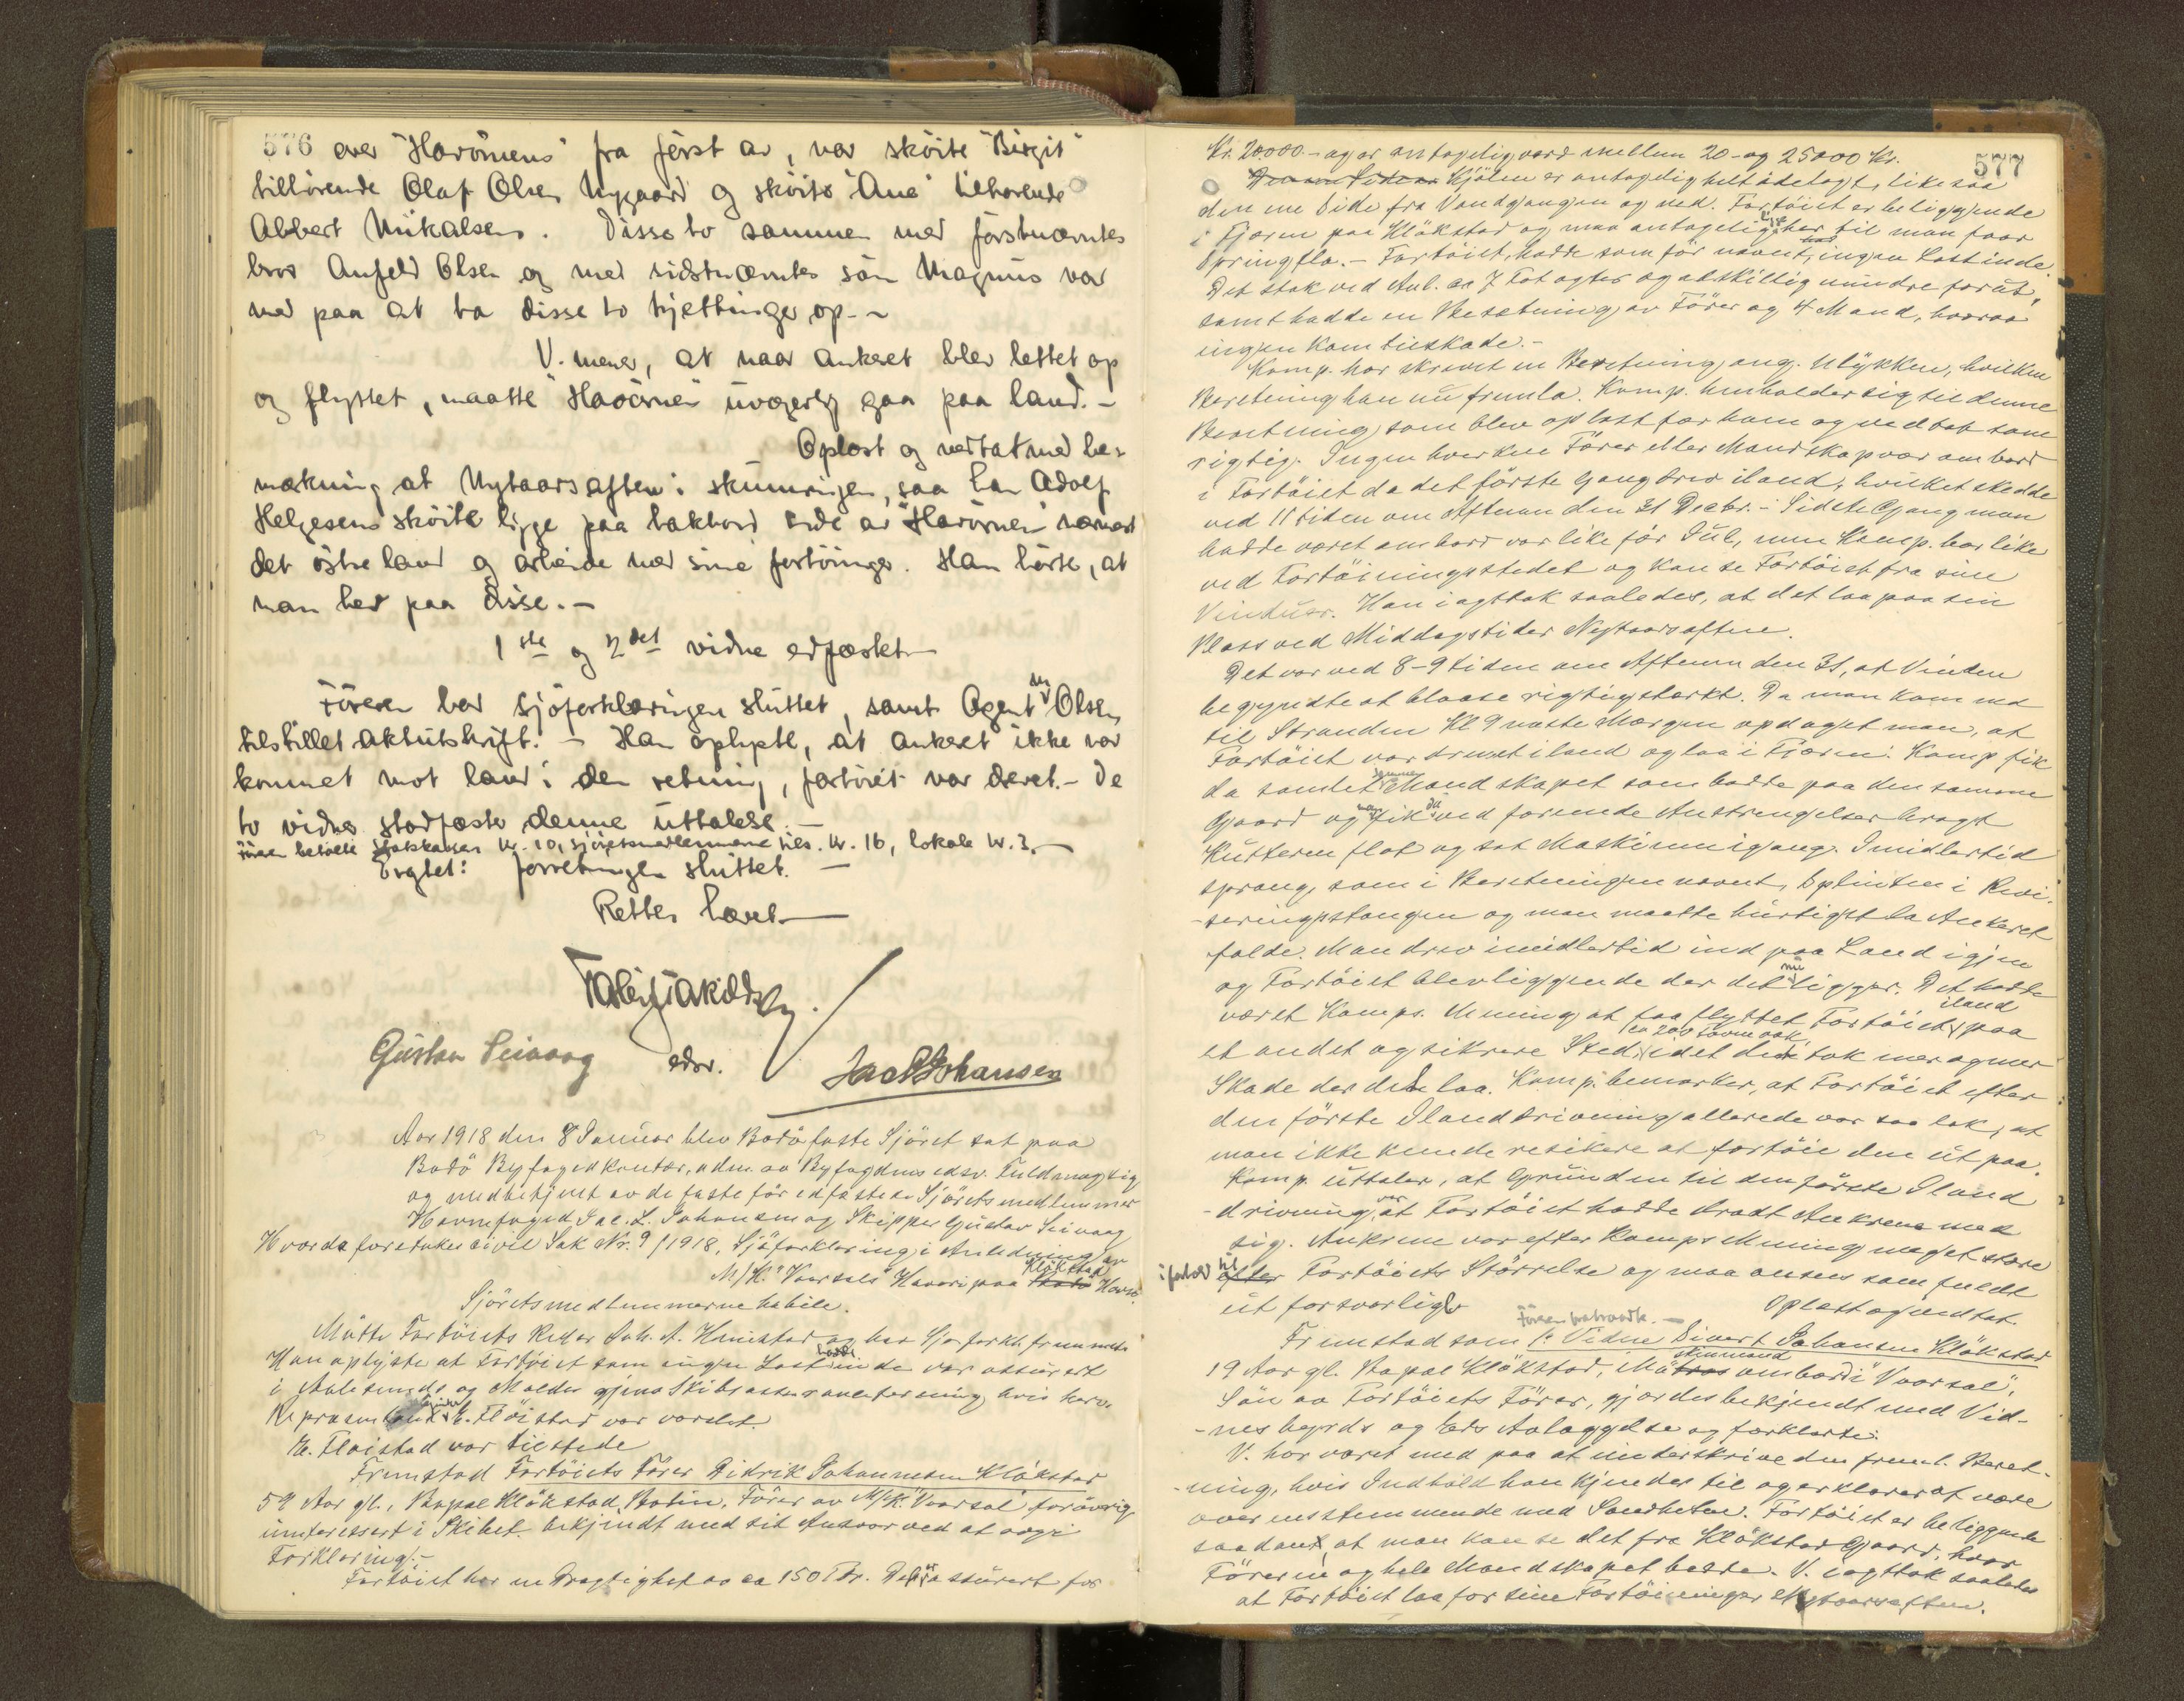 576 over "Havörnens" fra först av, var skóite "Birgit"
tillörende Olaf Olsen Nygaard og skóite "Ane" tilhörende
Albert Mikalsen. Disse to sammen med förstnævntes
bror Anfeld Olsen og med sidstnævntes sön Magnus var
med paa at ta disse to kjettinger op. -
V. mener, at naar ankeret blev lettet op
og flyttet, maatte "Havörnen" uvægerlig gaa paa land. -
Oplæst og vedtat med be-
mærkning at Nytaarsaften i skumringen, saa han Adolf
Helgesens skóite ligge paa bakbord side av "Havörnen" nærmest
det östre land og arbeide med sine fortöininger. Han hörte, at
man hev paa disse. -
1ste og 2det vidne edfæstet -
Föreren bad sjöforklaringen sluttet, samt Agent M Olsen
tilstillet aktutskrift. - Han oplyste, at ankeret ikke var
kommet mot land i den retning, fartöiet var drevet. - De
to vidner stadfæster denne uttalelse. -
Föreren betalte statskassen kr. 10, sjöretsmedlemmene tils. kr. 16, lokale kr. 3. -
Avgtet: forretningen sluttet. -
Retten hævet -
edsv.
Gustav Seivaag
Jac L Johansen
Aar 1918 den 8 Januar blev Bodö faste Sjöret sat paa
Bodö Byfogedkontor, adm. av Byfogdens edsv. Fuldmægtig
og medbetjent av de faste för edfæstede Sjöretsmedlemmer
Havnefoged Jac. L. Johansen og Skipper Gustav Seivaag
Hvorda foretokes civil Sak Nr. 9/1918, Sjöforklaring i Anledning av
M/K. "Vaarsols" Havari paa Klökstad Havn.
Sjöretsmedlemmerne habile.
Mötte Fartöiets Reder Joh. A. Hunstad og bad Sjöforkl. fremmet.
Han oplyste at Fartöiet som ingen Last hadde inde var assurert
i Aalesunds og Molde gjens. Skibsassuranceforening hvis herv.
Repræsentant E. Flöistad var varslet.
E. Flöistad var tilstede
Fremstod Fartöiets Förer Didrik Johannesen Klökstad
52 Aar gl., Bopæl Klökstad, Bodin, Förer av M/K. "Vaarsol" forövrig
uinteressert i Skibet, bekjendt med sit Ansvar ved at avgi
Forklaring. -
Fartöiet har en Drægtighet av ca 150 Tdr. Det er assurert for
577
Kr. 20000.- og er antagelig værd mellem 20- og 25000 Kr.
Kjölen er antagelig helt ödelagt, likesaa
den ene Side fra Vandgangen og ned. Fartöiet er beliggende
i Fjæren paa Klökstad og maa antagelig ligge her til man faar
Springflo. - Fartöiet, hadde som för nævnt, ingen Last inde.
Det stak ved Anl. ca 7 Fot agter og adskillig mindre forut,
samt hadde en Besetning av Förer og 4 Mand, hvorav
ingen kom tilskade. -
Komp. har skrevet en Beretning ang. Ulykken, hvilken
Beretning han nu fremla. Komp. henholder sig til denne
Beretning som blev oplæst for ham og vedtat som
rigtig. Ingen hverken Förer eller Mandskap var ombord
i Fartöiet da det förste Gang drev iland, hvilket skedde
ved 11 tiden om Aftenen den 31 Decbr. - Sidste Gang man
hadde været ombord var like för Jul, men Komp. bor like
ved Fortöiningsstedet og kan se Fartöiet fra sine
Vinduer. Han iagttok saaledes, at det laa paa sin
Plass ved Middagstider Nytaarsaften.
Det var ved 8-9 tiden om Aftenen den 31, at Vinden
begyndte at blaase rigtig sterkt. Da man kom ned
til Stranden Kl 9 næste Morgen opdaget man, at
Fartöiet var drevet iland og laa i Fjæren. Komp fik
da samlet Mandskapet som bodde paa den samme
Gaard og man fik da ved forenede Anstrengelser bragt
Kutteren flot og sat Maskinen igang. Imidlertid
sprang, som i Beretningen nævnt, Splinten i Rever-
-seringsstangen og man maatte hurtigst la Ankeret
falde. Man drev imidlertid ind paa Land igjen
og Fartöiet blev liggende der det nu ligger. Det hadde
været Komps. Mening at faa flyttet Fartöiet iland paa
et andet og sikrere Sted, ca 200 Favne væk, idet det tok mer og mer
Skade der det laa. Komp. bemærker, at Fartöiet efter
den förste Ilanddrivning allerede var saa læk, at
man ikke kunde resikere at fortöie den ut paa.
Komp. uttaler, at Grunden til den förste Iland
-drivning var at Fartöiet hadde dradt Ankrene med
sig. Ankrene var efter Komps Mening meget store
i forhold til Fartöiets Störrelse og maa ansees som fuldt
ut forsvarlig. Oplæst og vedtat.
Föreren fratraadte. -
Fremstod som 1. Vidne Sivert Johansen Klökstad
19 Aar gl. Bopæl Klökstad, skinmand ombord i "Vaarsol",
Sön av Fartöiets Förer, gjordes bekjendt med Vid-
-nesbyrds og Eds Avlæggelse og forklarte:
V. har været med paa at underskrive den freml. Beret-
-ning, hvis Indhold han kjender til og erklærer at være
overensstemmende med Sandheten. Fartöiet er beliggende
saadant at man kan se det fra Klökstad Gaard, hvor
Föreren og hele Mandskapet bodde. V. iagttok saaledes
at Fartöiet laa for sine Fortöininger Nytaarsaften.